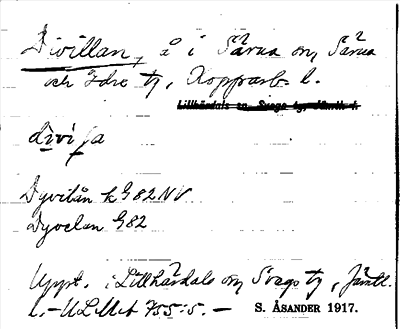 Divillan, å i Särna sn, Särna
och Idre tg, Kopparb. l.
Lillhärdals sn, Svegs tg, Jämtl. l.
Dyvilån k G82 NV
Dyvelan G82
Uppt. i Lillhärdals sn, Svegs tg, Jämtl.
l. - ULMA 755:5. - S. ÅSANDER 1917.